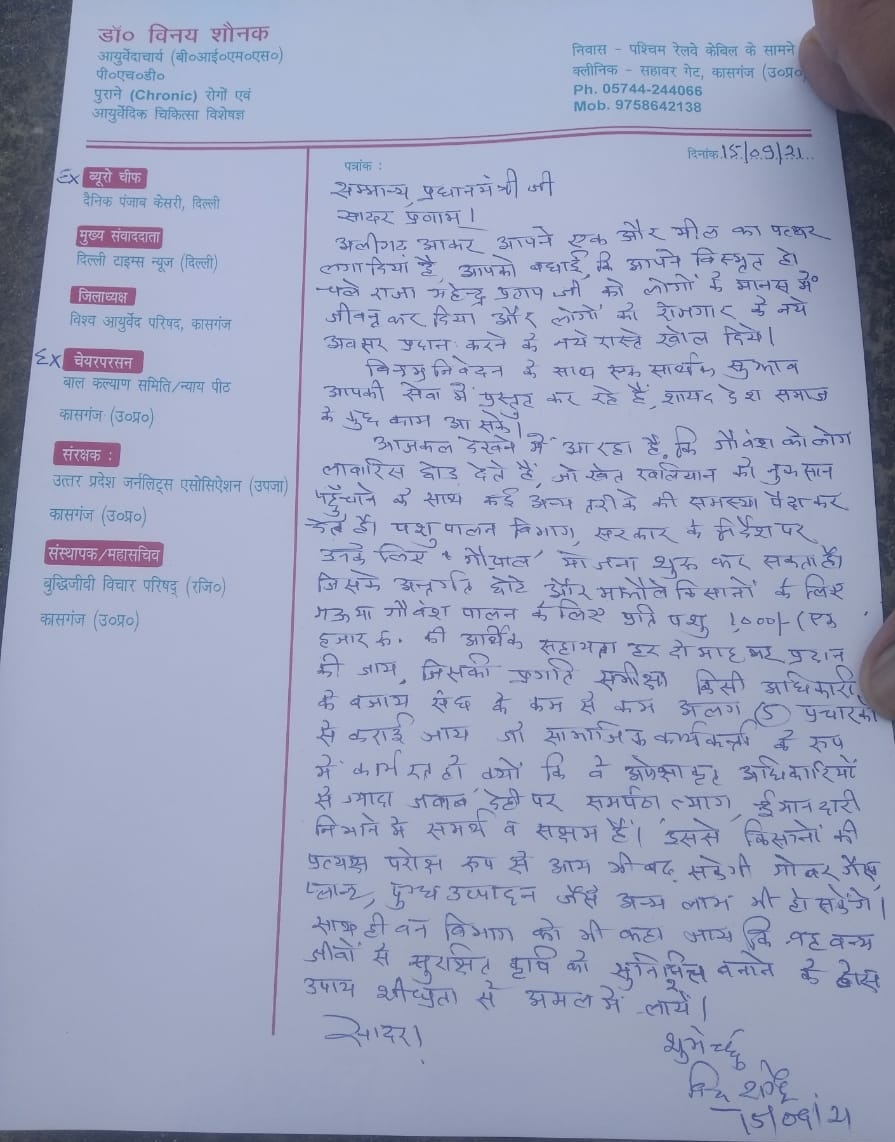 डॉ० विनय शौनक
आयुर्वेदाचार्य (बी०आई०एम०एस०)
पी०एच०डी०
पुराने (Chronic) रोगों एवं
आयुर्वेदिक चिकित्सा विशेषज्ञ
निवास - पश्चिम रेलवे केबिल के सामने
क्लीनिक - सहावर गेट, कासगंज (उ०प्र०)
Ph. 05744-244066
Mob. 9758642138
Ex ब्यूरो चीफ
दैनिक पंजाब केसरी, दिल्ली
मुख्य संवाददाता
दिल्ली टाइम्स न्यूज (दिल्ली)
जिलाध्यक्ष
विश्व आयुर्वेद परिषद, कासगंज
Ex चेयरपरसन
बाल कल्याण समिति/न्याय पीठ
कासगंज (उ०प्र०)
संरक्षक :
उत्तर प्रदेश जर्नलिट्स एसोसिऐशन (उपजा)
कासगंज (उ०प्र०)
संस्थापक/महासचिव
बुद्धिजीवी विचार परिषद् (रजि०)
कासगंज (उ०प्र०)
पत्रांक :
दिनांक 15/09/21
सम्मान्य प्रधानमंत्री जी
सादर प्रणाम।
अलीगढ़ आकर आपने एक और मील का पत्थर
लगा दिया है, आपको बधाई कि आपने विस्मृत हो
चले राजा महेन्द्र प्रताप जी को लोगों के मानस में
जीवन्त कर दिया और लोगों को रोजगार के नये
अवसर प्रदान करने के नये रास्ते खोल दिये।
विनम्र निवेदन के साथ एक सार्थक सुझाव
आपकी सेवा में प्रस्तुत कर रहे हैं, शायद देश समाज
के कुछ काम आ सके।
आजकल देखने में आ रहा है, कि गौवंश को लोग
लावारिस छोड़ देते हैं, जो खेत खलियान को नुकसान
पहुँचाने के साथ कई अन्य तरीके की समस्या पैदा कर
देते हैं। पशु पालन विभाग, सरकार के निर्देश पर
उनके लिए 'गौपाल' योजना शुरू कर सकता है।
जिसके अन्तर्गत छोटे और मझौले किसानों के लिए
गऊ या गौवंश पालन के लिए प्रति पशु 1,000/- (एक
हजार रु. की आर्थिक सहायता हर दो माह पर प्रदान
की जाय, जिसकी प्रगति समीक्षा किसी अधिकारी
के बजाय संघ के कम से कम अलग (5) प्रचारकों
से कराई जाय जो सामाजिक कार्यकर्ता के रूप
में कार्यरत हो क्यों कि वे अपेक्षाकृत अधिकारियों
से ज्यादा जवाब देही पर समर्पण त्याग, ईमानदारी
निभाने में समर्थ व सक्षम हैं। इससे किसानों की
प्रत्यक्ष परोक्ष रूप से आय भी बढ़ सकेगी गोबर गैस
प्लान्ट, दुग्ध उत्पादन जैसे अन्य लाभ भी हो सकेंगे।
साथ ही वन विभाग को भी कहा जाय कि वह वन्य
जीवों से सुरक्षित कृषि को सुनिश्चित बनाने के ठोस
उपाय शीघ्रता से अमल में लायें।
सादर।
शुभेच्छु
15/09/21